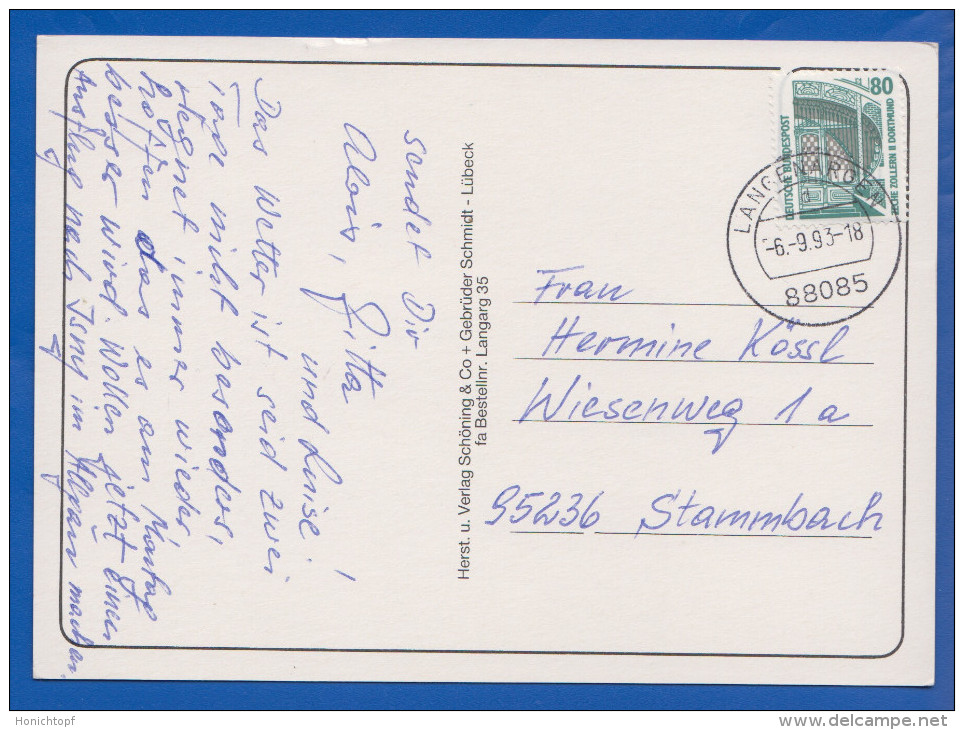 sendet Dir
Alois, Gitta und Luise!
Das Wetter ist seid zwei
Tage nicht besonders,
regnet immer wieder,
hoffen das es am Montag
besser wird. Wollen jetzt einen
Ausflug nach Isny im Allgäu machen.
Herst. u. Verlag Schöning & Co + Gebrüder Schmidt - Lübeck
fa Bestellnr. Langarg 35
80
DEUTSCHE BUNDESPOST
ZECHE ZOLLERN II DORTMUND
LANGENARGEN
-6.-9.93-18
88085
Frau
Hermine Kössl
Wiesenweg 1a
95236 Stammbach
Honichtopf
www.delcampe.net